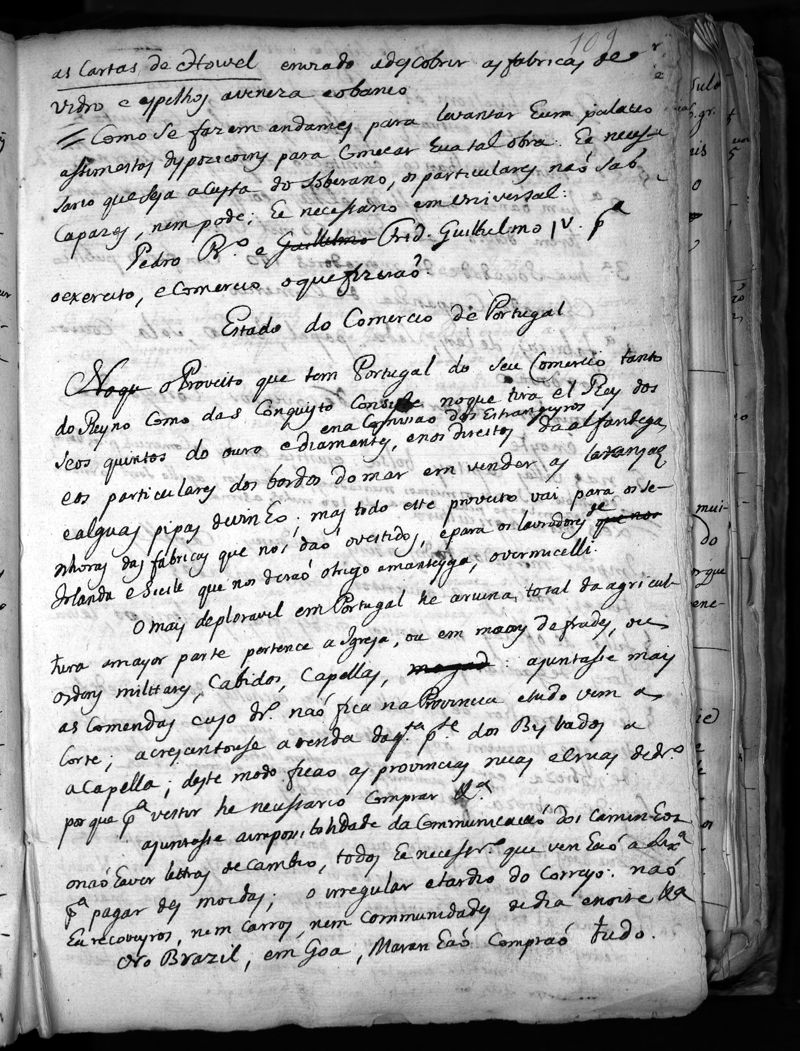 109
as Cartas de Howel enviado adescobrir as fabricas de
vidro e espelhos aveneza eobanco
= Como se fazem andames para levantar hum palacio
assimestas dispozicoins para Comecar huatal obra. He neces-
sario que seja acusta do Soberano, os particulares naó sab
Capazes, nem pode; he necessario em universal:
Pedro Rº. e Guilhelmo Frid. Guilhelmo IV. pª
oexercito, e Comercio oque fizeraó.
Estado do Comercio de Portugal
Noqu o Proveito que tem Portugal do seu Comercio tanto
do Reyno Como das Conquistas Consiste noque tira el Rey dos
ena Comisao dos Estrangeyros
seos quintos do ouro ediamantes, enos direitos da alfandega,
eos particulares dos bordos do mar em vender as laranjas
ealguas pipas devinho; mas todo este proveito vai para os se-
nhores das fabricas que nos daó ovestidos, epara os lavradores de que nos
Irlanda e Sicile que nos deraó otrigo amanteyga, overmicelli.
O mais deploravel em Portugal he aruina total da agricul-
tura amayor parte pertence a Igreja, ou em maos de frades, ou
ordens militares, Cabidos, Capellas, : ajuntasse mais
as Comendas cujo drº. naó fica na Provincia etudo vem a
Corte; acreçantouse arenda da qᵗª pᵗᵉ dos Bispados a
aCapella; deste modo ficaó as provincias nuas de drº.
porque pª vestir he necessario Comprar &ª
ajuntasse aimposibilidade da Communicaçaó dos Caminhos
onaó haver letras de Cambio, todos he necessrº. que venhaó a Lixª
pª pagar des moedas; o irregular etardio do Correyo: naó
ha recoveyros, nem Carros, nem Communidades dedia enoite &ª
Oro Brazil, em Goa, Maranhaó Compraó tudo.